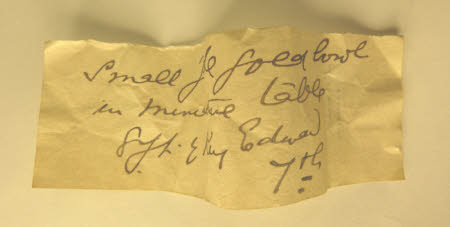 Small gold bowl
in miniature table
Gift. of King Edward
7th